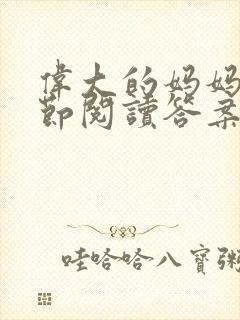 偉大的妈妈
節閱讀答案
哇哈哈八寶粥